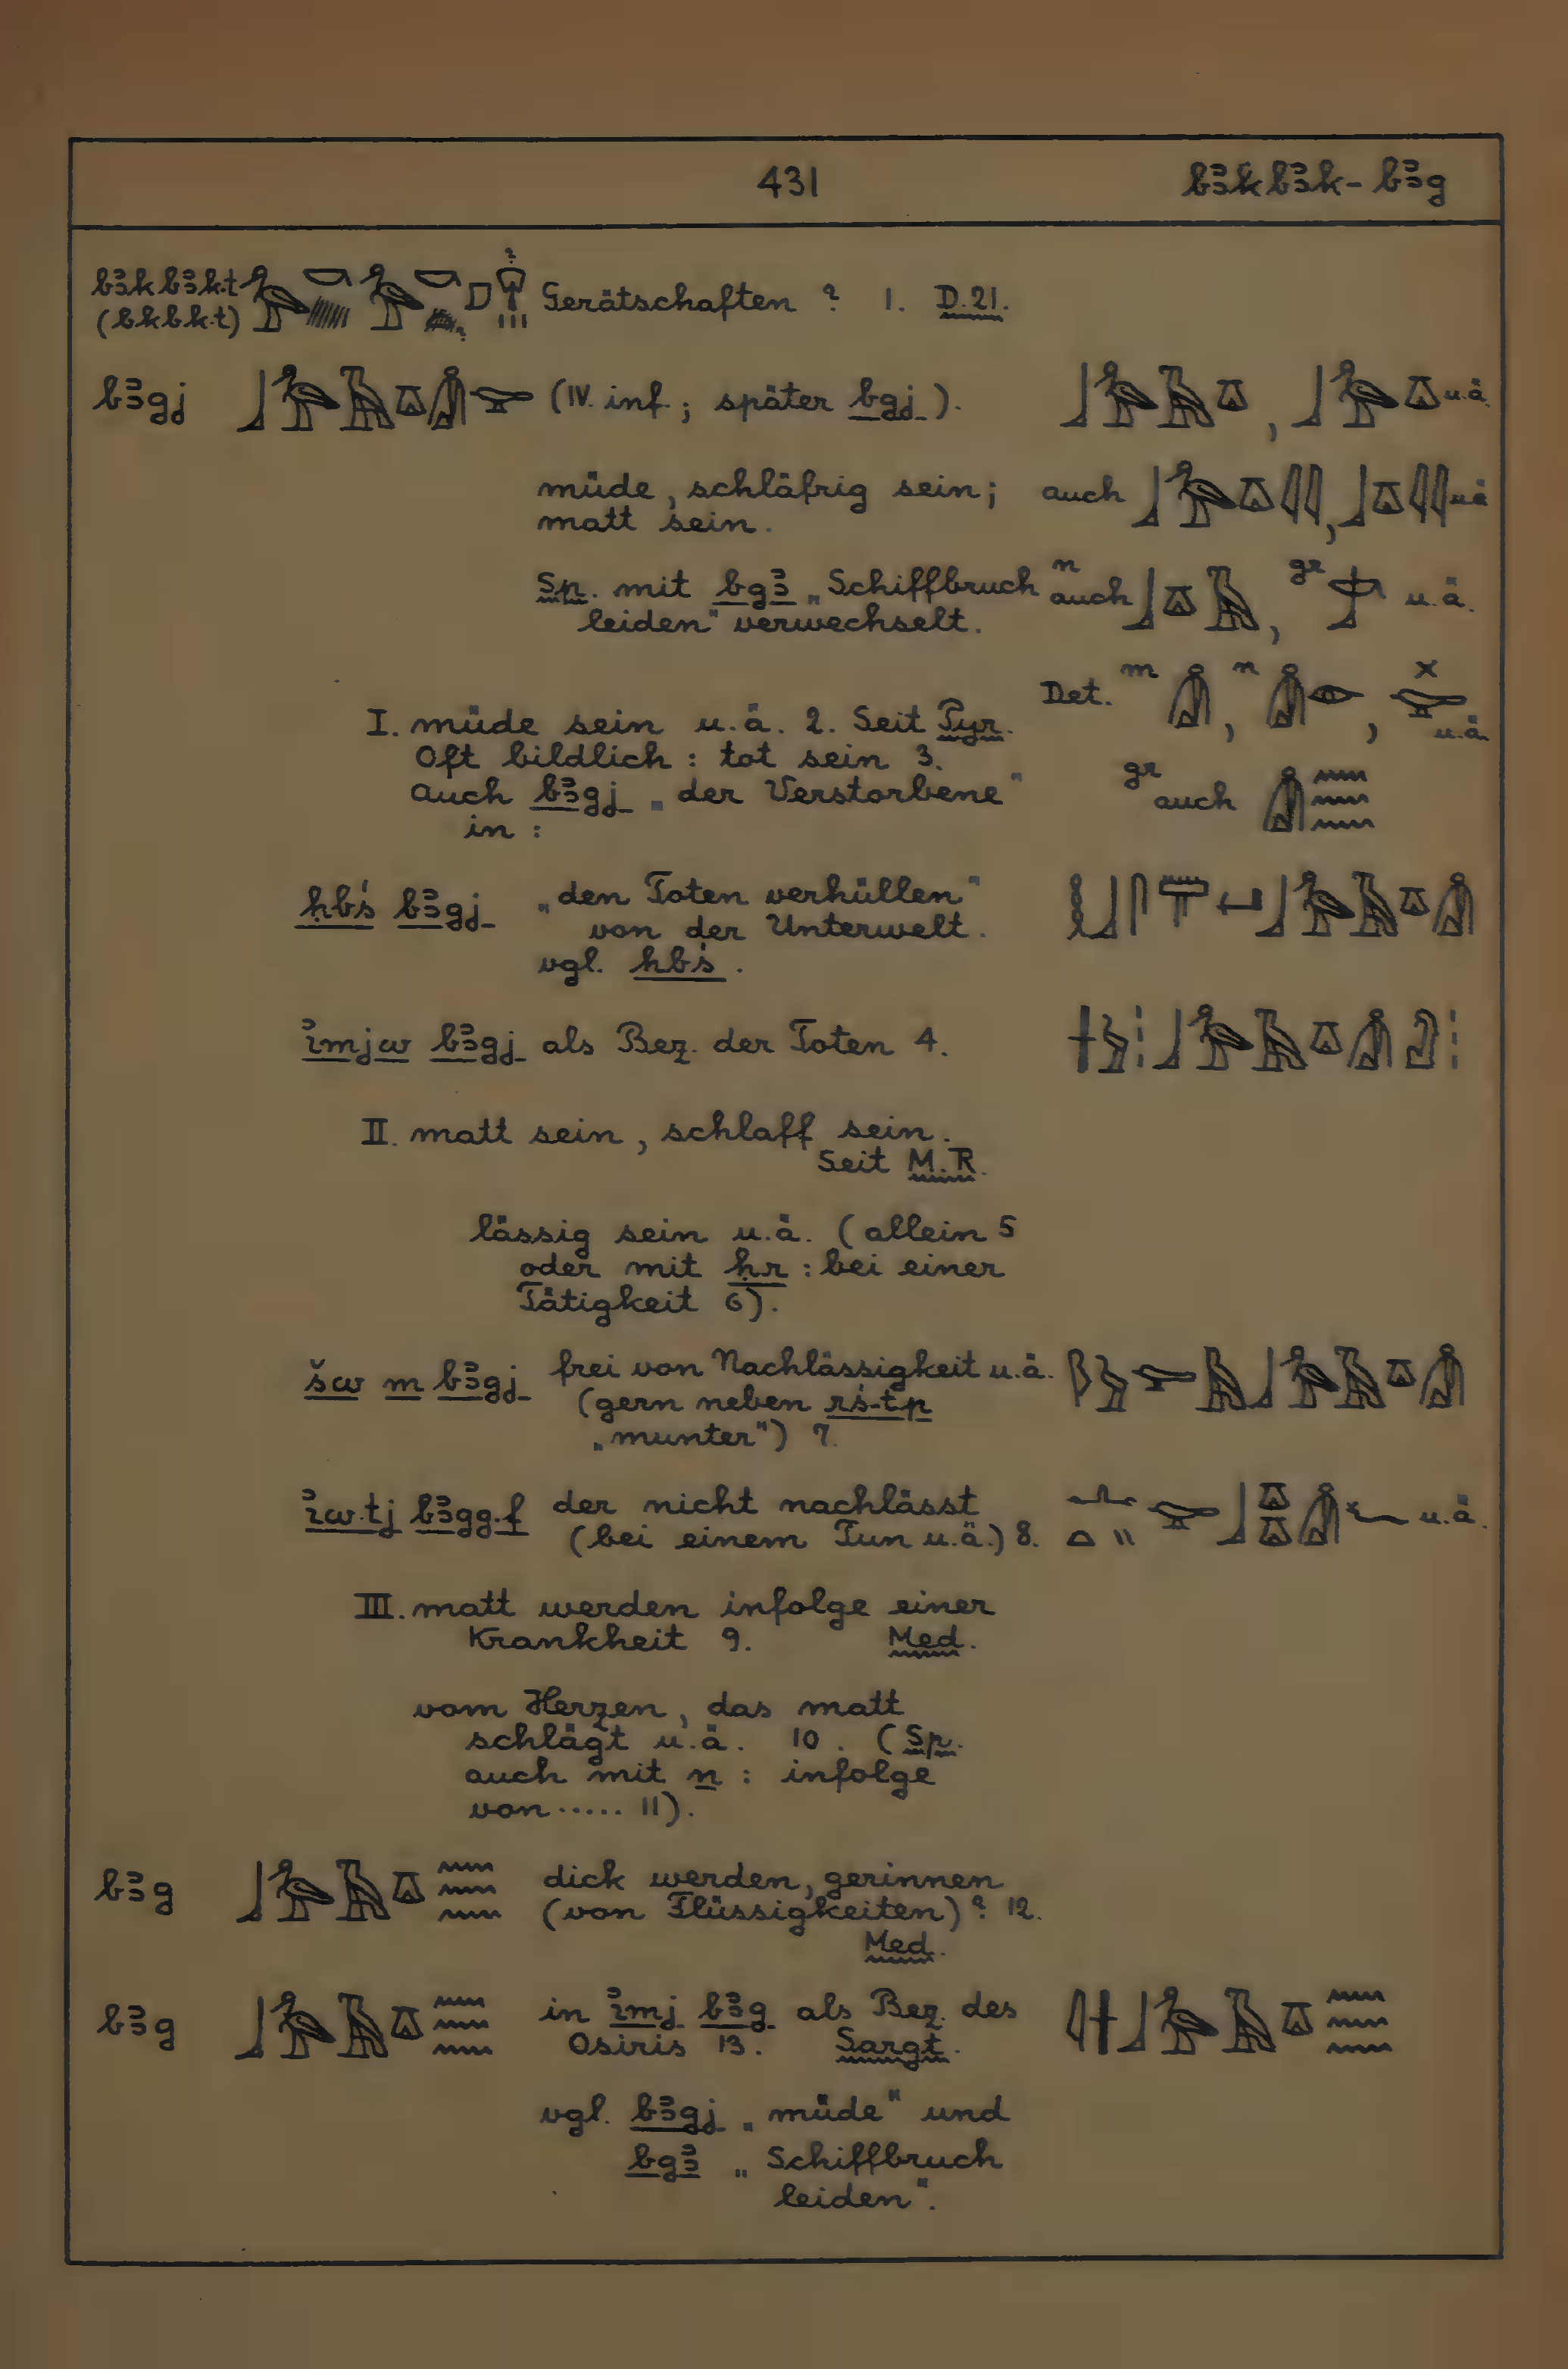 431 bꜣkbꜣk - bꜣg
bꜣkbꜣk.t Gerätschaften ? 1. D. 21.
(bkbk.t)
bꜣgj (IV. inf.; später bgj). u.ä.
müde, schläfrig sein; auch u.ä.
matt sein.
Sp. mit bgꜣ „Schiffbruch n auch gr u.ä.
leiden" verwechselt.
Det. m n x u.ä.
I. müde sein u.ä. 2. Seit Pyr.
Oft bildlich: tot sein 3.
auch bꜣgj „der Verstorbene" gr auch
in:
ḥbś bꜣgj „den Toten verhüllen"
von der Unterwelt.
vgl. ḥbś.
ꞽmjw bꜣgj als Bez. der Toten 4.
II. matt sein, schlaff sein.
Seit M.R.
lässig sein u.ä. (allein 5
oder mit ḥr: bei einer
Tätigkeit 6).
šw m bꜣgj frei von Nachlässigkeit u.ä.
(gern neben rś-tp
„munter") 7.
ꞽw.tj bꜣgg.f der nicht nachlässt
(bei einem Tun u.ä.) 8. u.ä.
III. matt werden infolge einer
Krankheit 9. Med.
vom Herzen, das matt
schlägt u.ä. 10. (Sp.
auch mit n: infolge
von ····· 11).
bꜣg dick werden, gerinnen
(von Flüssigkeiten)? 12.
Med.
bꜣg in ꞽmj bꜣg als Bez. des
Osiris 13. Sargt.
vgl. bꜣgj „müde" und
bgꜣ „Schiffbruch
leiden".